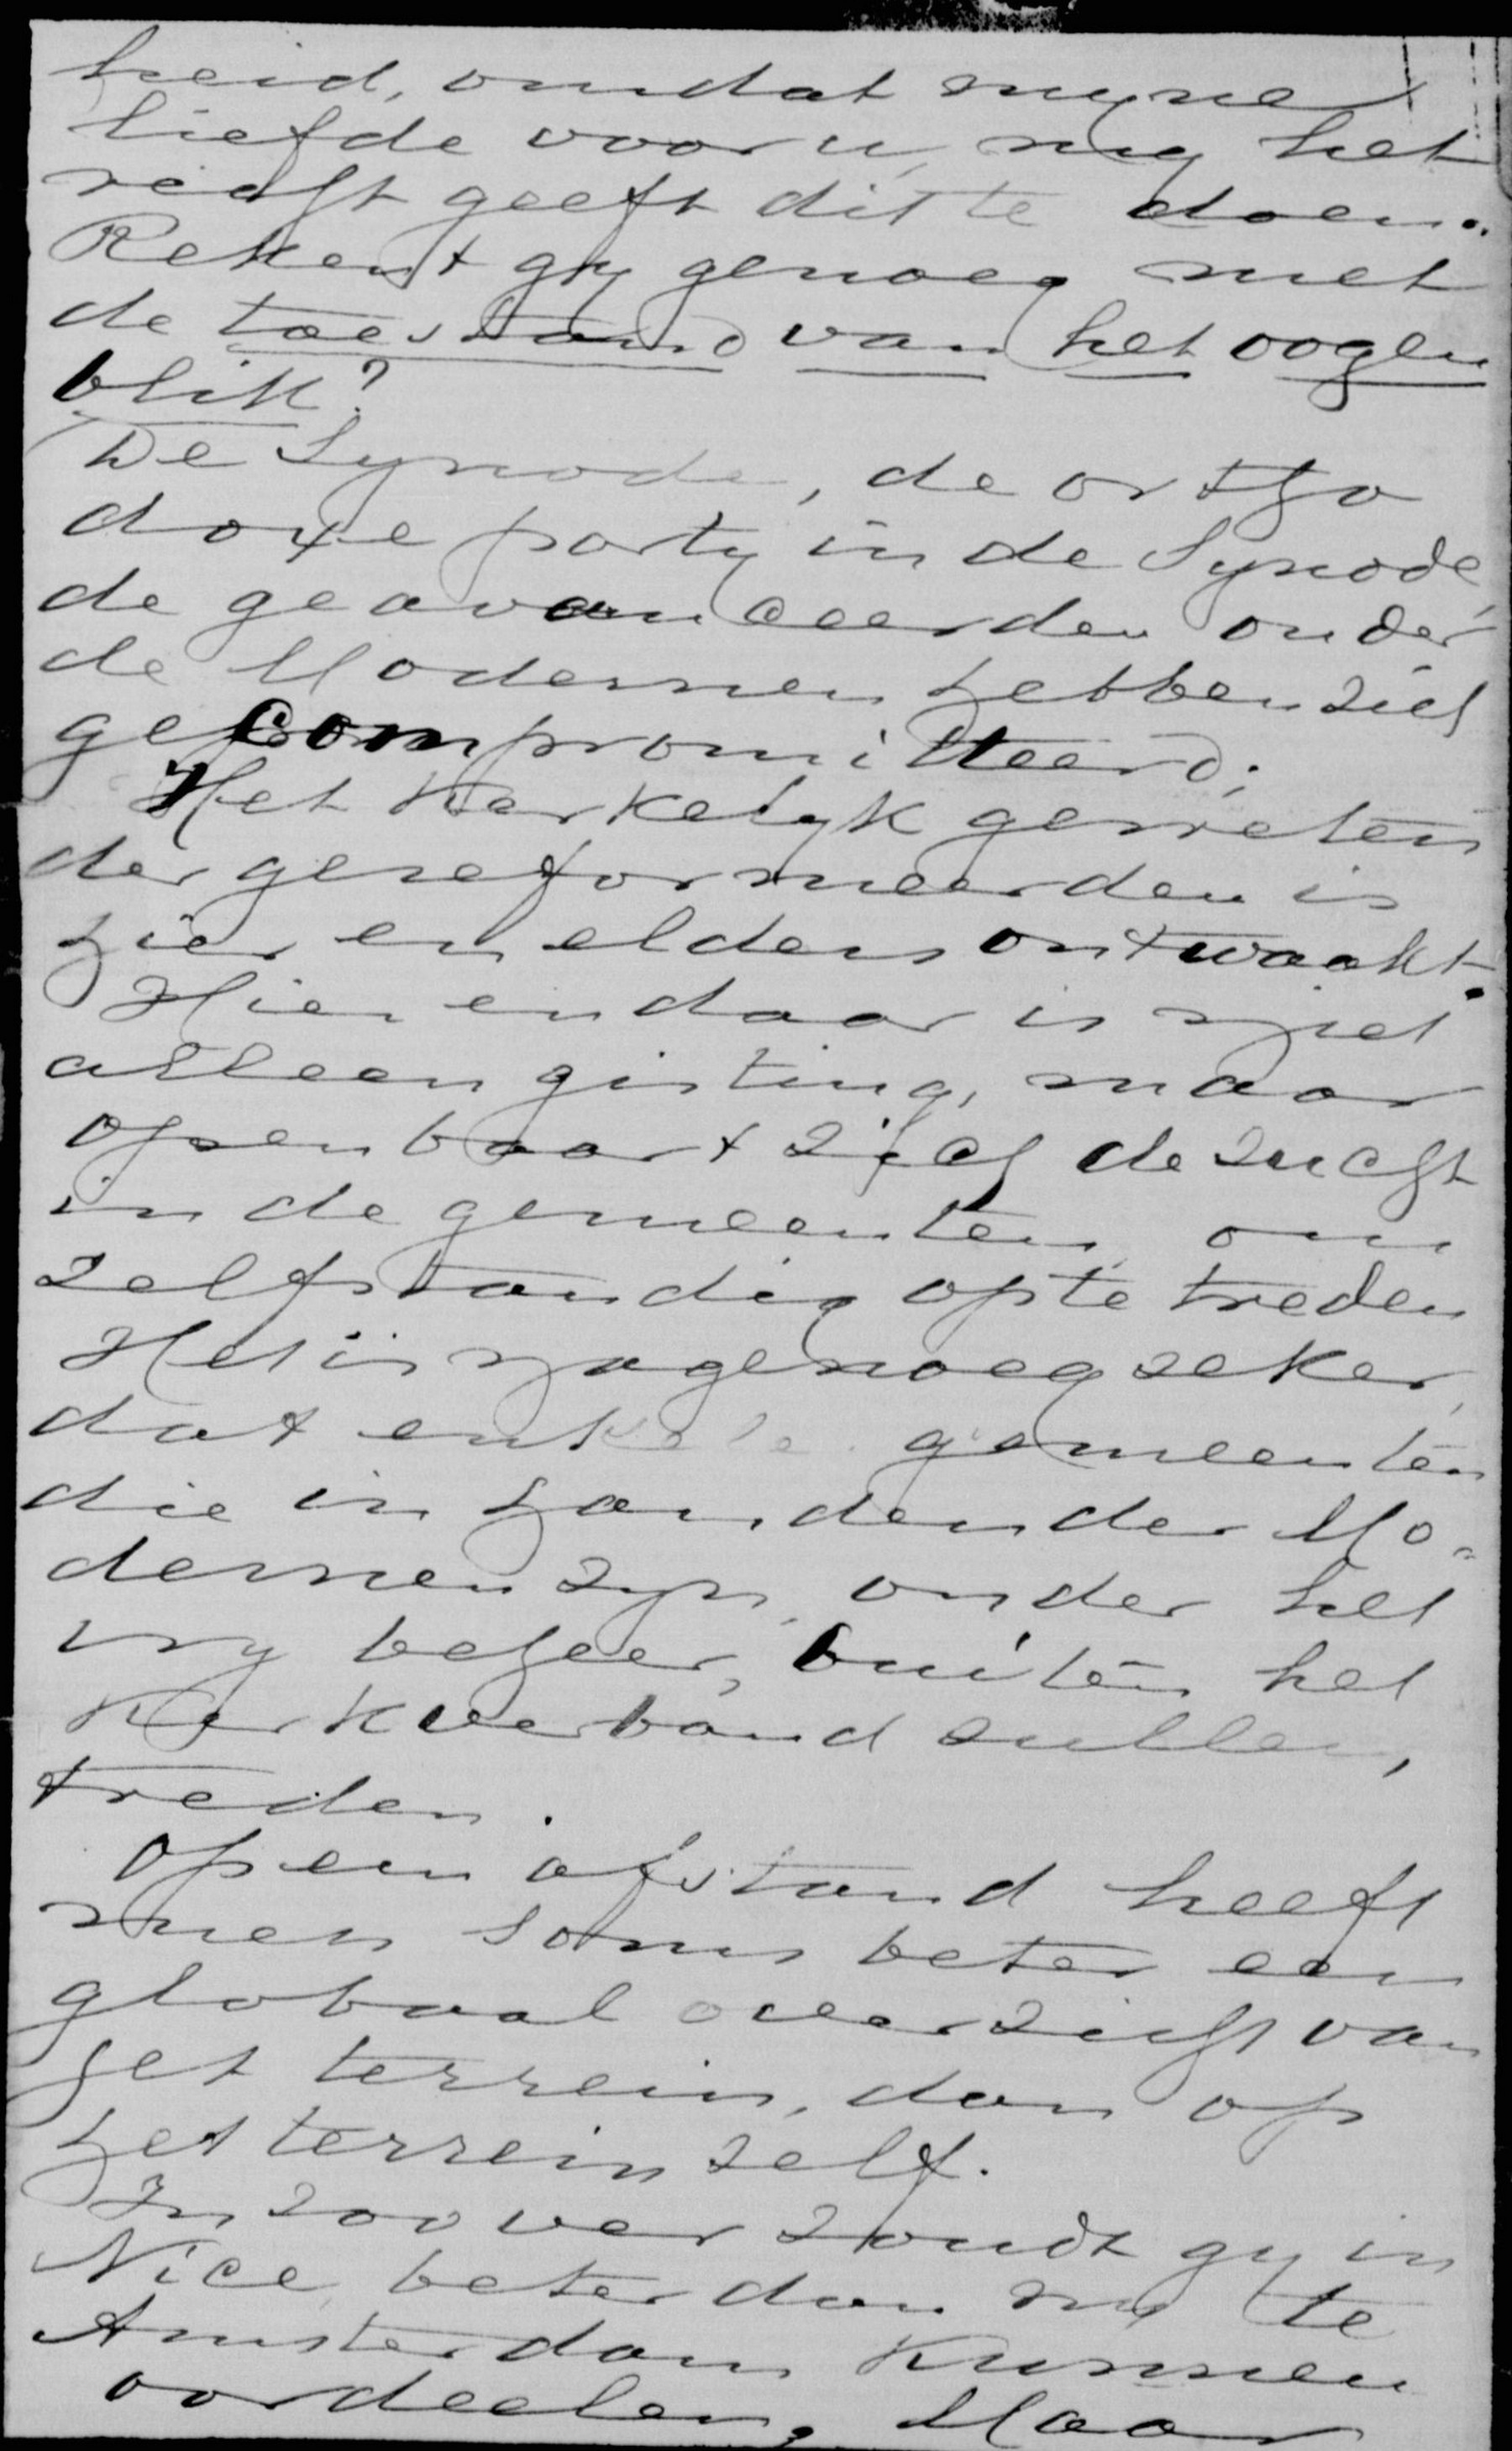 heid, omdat myne
liefde voor u, my het
recht geeft dit te doen.
Rekent gy genoeg met
de toestand van het oogen
blik?
De Synode, de ortho
doxe party in de Synode,
de geavanceerden onder
de Modernen hebben zich
gecompromitteerd;
Het Kerkelyk geweten
der gereformeerden is
hier en elders ontwaakt.
Hier en daar is niet
alleen gisting, maar
openbaart zich de zucht
in de gemeenten om
zelfstandig op te treden
Het is zoo genoeg zeker,
dat enkele gemeenten
die in handen der Mo-
dernen zyn, onder het
vry beheer, buiten het
Kerkverband zullen,
treden.
Op een afstand heeft
men soms beter een
globaal overzicht van
het terrein, dan op
het terrein zelf.
In zoover zoudt gy in
Nice beter dan my te
Amsterdam Kunnen
oordeelen. Maar